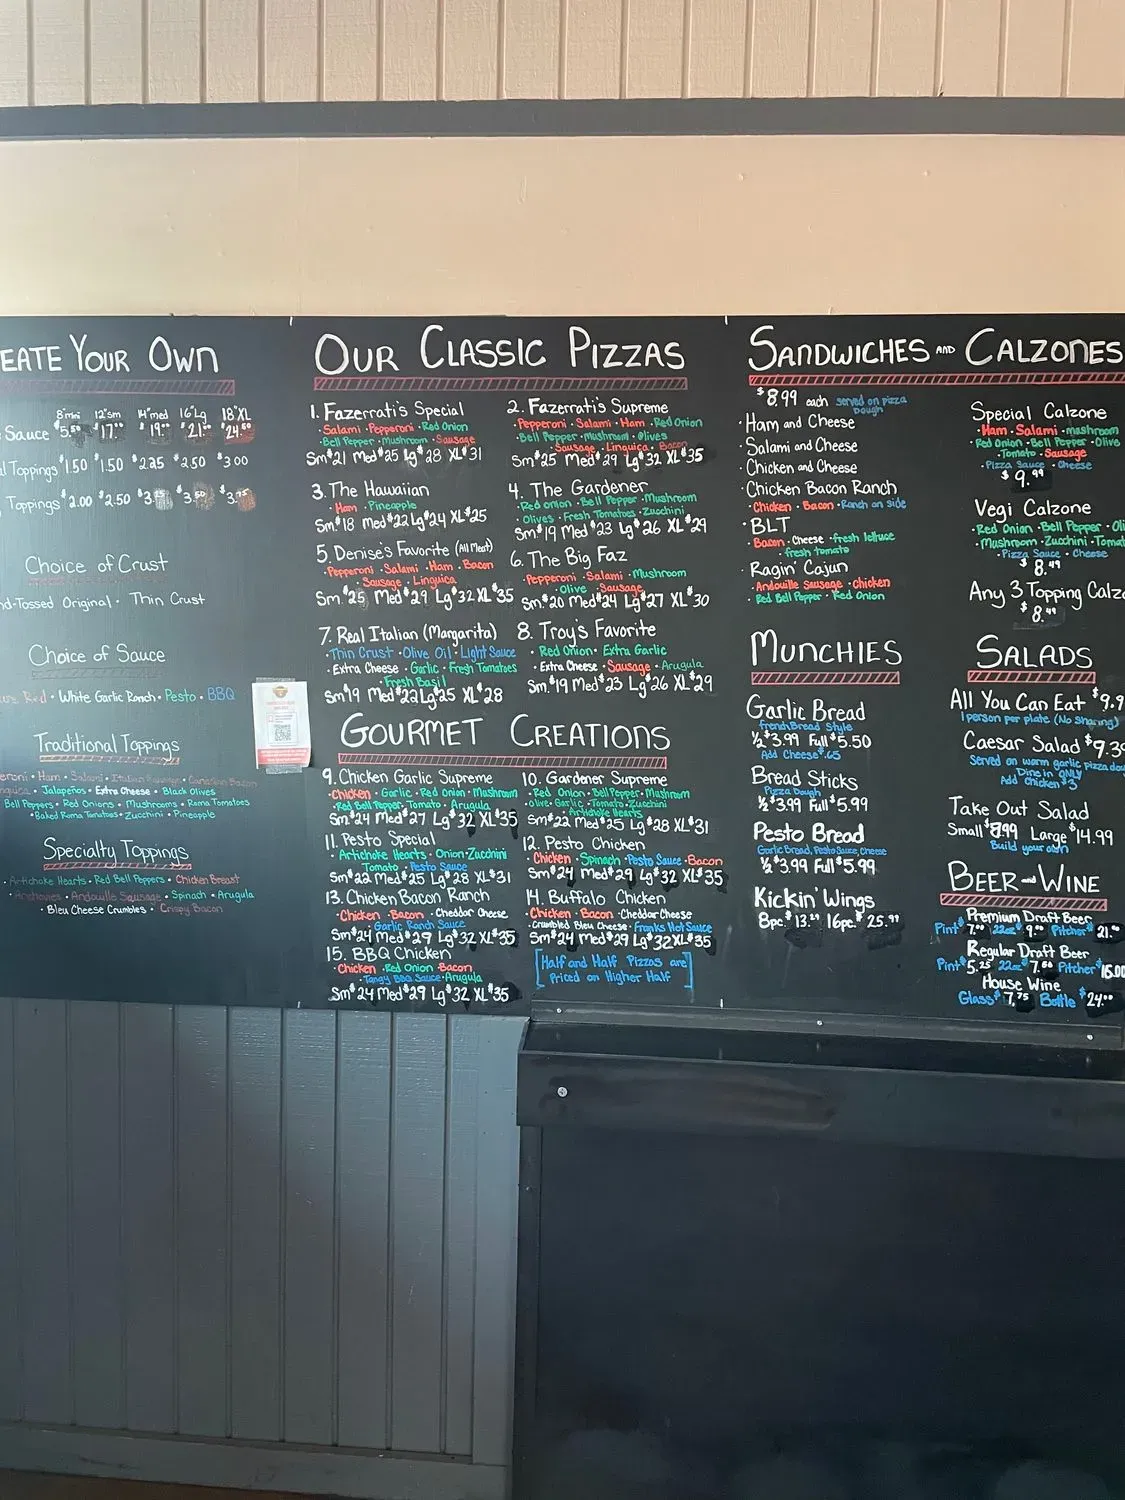 EATE YOUR OWN
8"mini 12"sm 14"med 16"Lg 18"XL
Sauce $5.50 $17.00 $19.00 $21.00 $24.50
Toppings $1.50 $1.50 $2.25 $2.50 $3.00
Toppings $2.00 $2.50 $3.25 $3.50 $3.75
Choice of Crust
d-Tossed Original · Thin Crust
Choice of Sauce
Red · White Garlic Ranch · Pesto · BBQ
Traditional Toppings
eroni · Ham · Salami · Italian Sausage · Canadian Bacon
nguica · Jalapeños · Extra Cheese · Black Olives
Bell Peppers · Red Onions · Mushrooms · Roma Tomatoes
· Baked Roma Tomatoes · Zucchini · Pineapple
Specialty Toppings
· Artichoke Hearts · Red Bell Peppers · Chicken Breast
· Anchovies · Andouille Sausage · Spinach · Arugula
· Bleu Cheese Crumbles · Crispy Bacon
OUR CLASSIC PIZZAS
1. Fazerrati's Special
· Salami · Pepperoni · Red Onion
· Bell Pepper · Mushroom · Sausage
Sm $21 Med $25 Lg $28 XL $31
2. Fazerrati's Supreme
Pepperoni · Salami · Ham · Red Onion
Bell Pepper · Mushroom · Olives
· Sausage · Linguica · Bacon
Sm $25 Med $29 Lg $32 XL $35
3. The Hawaiian
· Ham · Pineapple
Sm $18 Med $22 Lg $24 XL $25
4. The Gardener
· Red onion · Bell Pepper · Mushroom
· Olives · Fresh Tomatoes · Zucchini
Sm $19 Med $23 Lg $26 XL $29
5. Denise's Favorite (All Meat)
· Pepperoni · Salami · Ham · Bacon
· Sausage · Linguica
Sm $25 Med $29 Lg $32 XL $35
6. The Big Faz
· Pepperoni · Salami · Mushroom
· Olive · Sausage
Sm $20 Med $24 Lg $27 XL $30
7. Real Italian (Margarita)
· Thin Crust · Olive Oil · Light Sauce
· Extra Cheese · Garlic · Fresh Tomatoes
· Fresh Basil
Sm $19 Med $22 Lg $25 XL $28
8. Troy's Favorite
· Red Onion · Extra Garlic
· Extra Cheese · Sausage · Arugula
Sm $19 Med $23 Lg $26 XL $29
GOURMET CREATIONS
9. Chicken Garlic Supreme
· Chicken · Garlic · Red Onion · Mushroom
· Red Bell Pepper · Tomato · Arugula
Sm $24 Med $27 Lg $32 XL $35
10. Gardener Supreme
· Red Onion · Bell Pepper · Mushroom
· Olive · Garlic · Tomato · Zucchini
· Artichoke Hearts
Sm $22 Med $25 Lg $28 XL $31
11. Pesto Special
· Artichoke Hearts · Onion · Zucchini
Tomato · Pesto Sauce
Sm $22 Med $25 Lg $28 XL $31
12. Pesto Chicken
· Chicken · Spinach · Pesto Sauce · Bacon
Sm $24 Med $29 Lg $32 XL $35
13. Chicken Bacon Ranch
· Chicken · Bacon · Cheddar Cheese
· Garlic Ranch Sauce
Sm $24 Med $29 Lg $32 XL $35
14. Buffalo Chicken
· Chicken · Bacon · Cheddar Cheese
· Crumbled Bleu Cheese · Franks Hot Sauce
Sm $24 Med $29 Lg $32 XL $35
15. BBQ Chicken
· Chicken · Red Onion · Bacon
· Tangy BBQ Sauce · Arugula
Sm $24 Med $29 Lg $32 XL $35
Half and Half Pizzas are
Priced on Higher Half
SANDWICHES AND CALZONES
$8.99 each served on pizza
Dough
· Ham and Cheese
· Salami and Cheese
· Chicken and Cheese
· Chicken Bacon Ranch
· Chicken · Bacon · Ranch on side
· BLT
· Bacon · Cheese · fresh lettuce
· fresh tomato
· Ragin' Cajun
· Andouille Sausage · Chicken
· Red Bell Pepper · Red Onion
Special Calzone
· Ham · Salami · mushroom
Red Onion · Bell Pepper · Olive
· Tomato · Sausage
· Pizza Sauce · Cheese
$9.99
Vegi Calzone
· Red Onion · Bell Pepper · Oli
· Mushroom · Zucchini · Tomat
· Pizza Sauce · Cheese
$8.49
Any 3 Topping Calz
$8.49
MUNCHIES
Garlic Bread
French Bread Style
1/2 $3.99 Full $5.50
Add Cheese $.65
Bread Sticks
Pizza Dough
1/2 $3.99 Full $5.99
Pesto Bread
Garlic Bread, Pesto Sauce, Cheese
1/2 $3.99 Full $5.99
Kickin' Wings
8pc. $13.29 16pc. $25.99
SALADS
All You Can Eat $9.9
1 person per plate (No Sharing)
Caesar Salad $9.3
Served on warm garlic pizza dou
Dine in ONLY
Add Chicken $3
Take Out Salad
Small $8.99 Large $14.99
Build your own
BEER and WINE
Premium Draft Beer
Pint $7.00 22oz $9.00 Pitcher $21.00
Regular Draft Beer
Pint $5.25 22oz $7.50 Pitcher $15.00
House Wine
Glass $7.75 Bottle $24.00